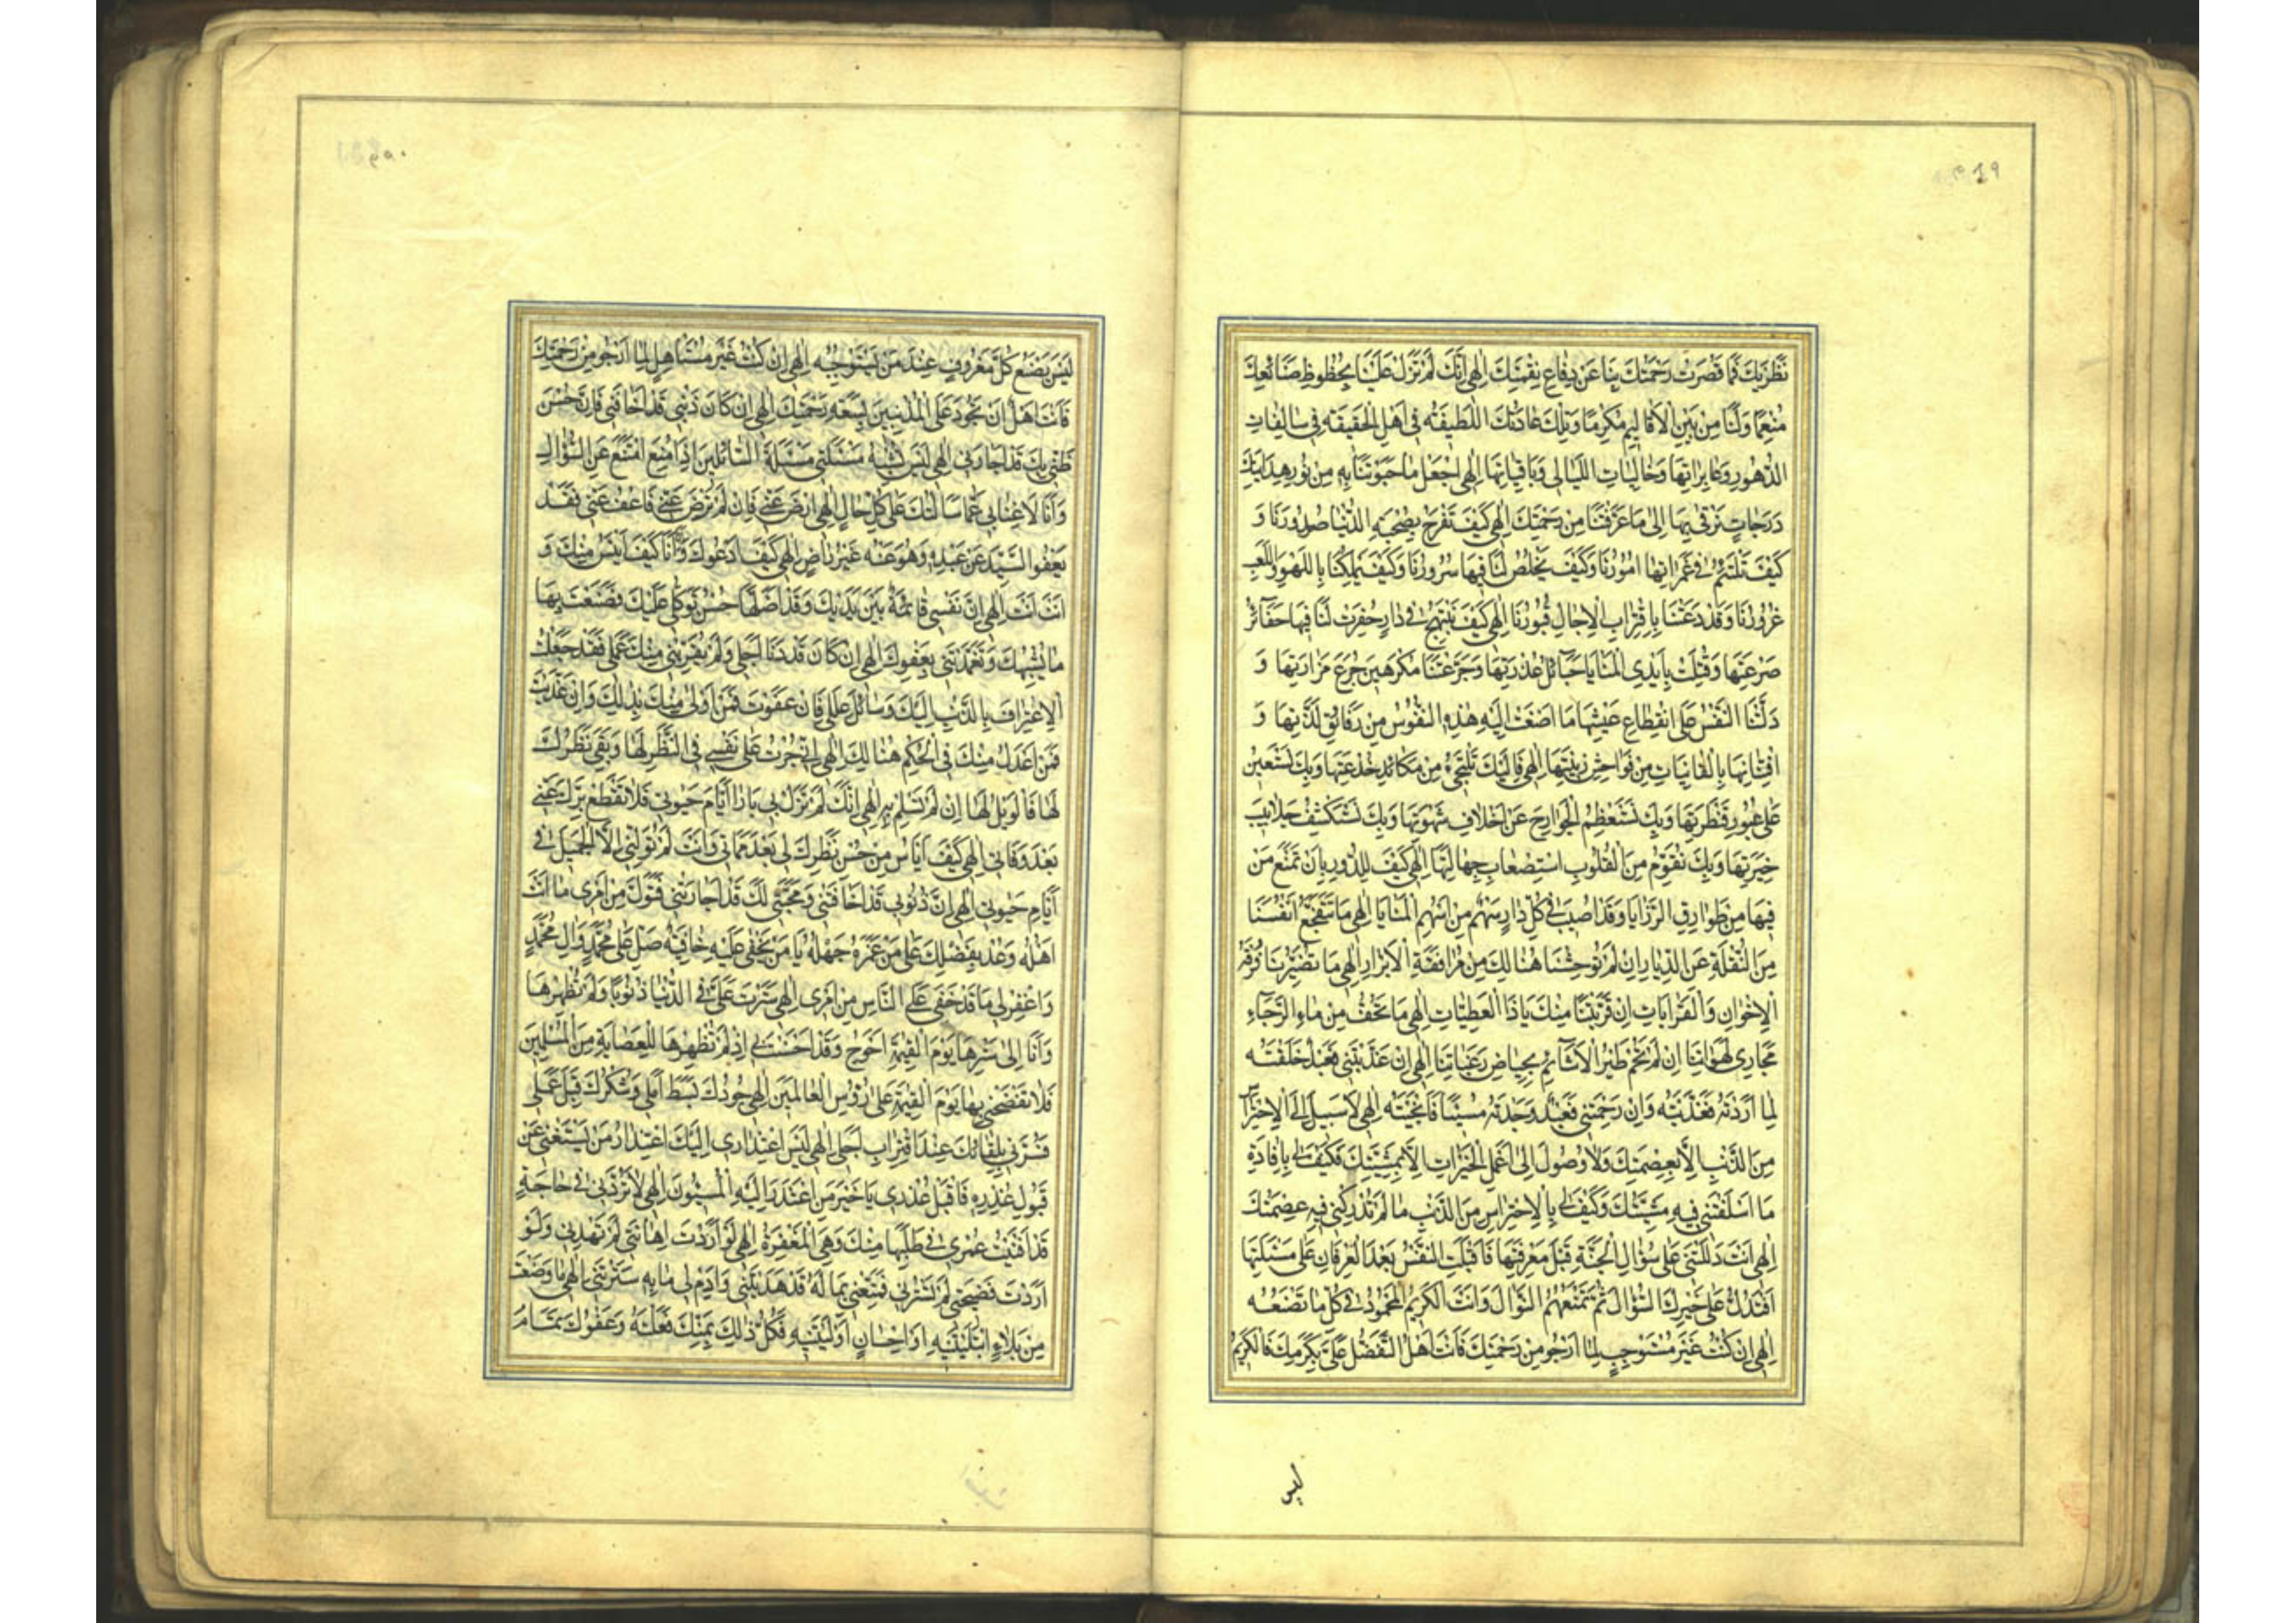 ۴۸۹
نَظَرِيكَ فَمَا قَصُرَتْ رَحْمَتُكَ بِنَا عَنْ دِفَاعِ نِقْمَتِكَ اِلٰهِى اِنَّكَ لَمْ تَزَلْ عَلَيْنَا بِحُظُوظِ صَنَائِعِكَ
مُنْعِمًا وَلَنَا مِنْ بَيْنِ الْاَقَالِيمِ مُكْرِمًا وَتِلْكَ عَادَتُكَ اللَّطِيفَةُ فِى اَهْلِ الْحَقِيقَةِ فِى سَالِفَاتِ
الدُّهُورِ وَغَابِرَاتِهَا وَخَالِيَاتِ اللَّيَالِى وَبَاقِيَاتِهَا اِلٰهِى اجْعَلْ مَا حَبَوْتَنَا بِهِ مِنْ نُورِ هِدَايَتِكَ
دَرَجَاتٍ نَرْقٰى بِهَا اِلٰى مَا عَرَّفْتَنَا مِنْ رَحْمَتِكَ اِلٰهِى كَيْفَ تَفْرَحُ بِصُحْبَةِ الدُّنْيَا صُدُورُنَا وَ
كَيْفَ تَلْتَئِمُ فِى غَمَرَاتِهَا اُمُورُنَا وَكَيْفَ يَخْلُصُ لَنَا فِيهَا سُرُورُنَا وَكَيْفَ يَمْلِكُنَا بِاللَّهْوِ وَاللَّعِبِ
غُرُورُنَا وَقَدْ دَعَتْنَا بِاقْتِرَابِ الْاٰجَالِ قُبُورُنَا اِلٰهِى كَيْفَ نَبْتَهِجُ فِى دَارٍ حُفِرَتْ لَنَا فِيهَا حَفَائِرُ
صَرْعَتِهَا وَقُتِلَتْ بِاَيْدِى الْمَنَايَا حَبَائِلُ غُدْرَتِهَا وَجَرَّعَتْنَا مُكْرَهِينَ جُرَعَ مَرَارَتِهَا وَ
دَلَّتْنَا النَّفْسُ عَلَى انْقِطَاعِ عَيْشِهَا مَا اَصْغَتْ اِلَيْهِ هٰذِهِ النُّفُوسُ مِنْ رَفَائِقِ لَذَّتِهَا وَ
افْتِتَانِهَا بِالْفَانِيَاتِ مِنْ فَوَاحِشِ زِينَتِهَا اِلٰهِى فَاِلَيْكَ نَلْتَجِئُ مِنْ مَكَائِدِ خُدْعَتِهَا وَبِكَ نَسْتَعِينُ
عَلٰى عُبُورِ قَنْطَرَتِهَا وَبِكَ نَسْتَعْظِمُ الْجَوَارِحَ عَنْ اَخْلَافِ شَهْوَتِهَا وَبِكَ نَسْتَكْشِفُ جَلَابِيبَ
حَيْرَتِهَا وَبِكَ نُقَوِّمُ مِنَ الْقُلُوبِ اسْتِصْعَابَ جَهَالَتِهَا اِلٰهِى كَيْفَ لِلدُّورِ بِاَنْ تَمْنَعَ مَنْ
فِيهَا مِنْ طَوَارِقِ الرَّزَايَا وَقَدْ اُصِيبَ فِى كُلِّ دَارٍ سَهْمٌ مِنْ اَسْهُمِ الْمَنَايَا اِلٰهِى مَا تَتَفَجَّعُ اَنْفُسُنَا
مِنَ النُّقْلَةِ عَنِ الدِّيَارِ اِنْ لَمْ تُوحِشْنَا هُنَالِكَ مِنْ مُرَافَقَةِ الْاَبْرَارِ اِلٰهِى مَا تَضُرُّنَا فُرْقَةُ
الْاِخْوَانِ وَالْقَرَابَاتِ اِنْ قَرَّبْتَنَا مِنْكَ يَا ذَا الْعَطِيَّاتِ اِلٰهِى مَا تَجُفُّ مِنْ مَاءِ الرَّجَاءِ
مَجَارِى لَهَوَاتِنَا اِنْ لَمْ تَحُمْ طَيْرُ الْاَشَائِمِ بِحِيَاضِ رَغَبَاتِنَا اِلٰهِى اِنْ عَذَّبْتَنِى فَعَبْدٌ خَلَقْتَهُ
لِمَا اَرَدْتَهُ فَعَذَّبْتَهُ وَاِنْ رَحِمْتَنِى فَعَبْدٌ وَجَدْتَهُ مُسِيئًا فَاَنْجَيْتَهُ اِلٰهِى لَا سَبِيلَ اِلَى الْاِحْتِرَاسِ
مِنَ الذَّنْبِ اِلَّا بِعِصْمَتِكَ وَلَا وُصُولَ اِلٰى عَمَلِ الْخَيْرَاتِ اِلَّا بِمَشِيَّتِكَ فَكَيْفَ لِى بِاِفَادَةِ
مَا اَسْلَفْتَنِى فِيهِ مَشِيَّتُكَ وَكَيْفَ لِى بِالْاِحْتِرَاسِ مِنَ الذَّنْبِ مَا لَمْ تُدْرِكْنِى فِيهِ عِصْمَتُكَ
اِلٰهِى اَنْتَ دَلَلْتَنِى عَلٰى سُؤَالِ الْجَنَّةِ قَبْلَ مَعْرِفَتِهَا فَاَقْبَلَتِ النَّفْسُ بَعْدَ الْعِرْفَانِ عَلٰى مَسْئَلَتِهَا
اَفَتَدُلُّ عَلٰى خَيْرِكَ السُّؤَالَ ثُمَّ تَمْنَعُهُمُ النَّوَالَ وَاَنْتَ الْكَرِيمُ الْمَحْمُودُ فِى كُلِّ مَا تَصْنَعُهُ
اِلٰهِى اِنْ كُنْتُ غَيْرَ مُسْتَوْجِبٍ لِمَا اَرْجُو مِنْ رَحْمَتِكَ فَاَنْتَ اَهْلُ التَّفَضُّلِ عَلَىَّ بِكَرَمِكَ فَالْكَرِيمُ
لَيْسَ
۴۹۰
لَيْسَ يَضَعُ كُلَّ مَعْرُوفٍ عِنْدَ مَنْ يَسْتَوْجِبُهُ اِلٰهِى اِنْ كُنْتُ غَيْرَ مُسْتَاهِلٍ لِمَا اَرْجُو مِنْ رَحْمَتِكَ
فَاَنْتَ اَهْلُ اَنْ تَجُودَ عَلَى الْمُذْنِبِينَ بِسَعَةِ رَحْمَتِكَ اِلٰهِى اِنْ كَانَ ذَنْبِى قَدْ اَخَافَنِى فَاِنَّ حُسْنَ
ظَنِّى بِكَ قَدْ اَجَارَنِى اِلٰهِى لَيْسَ تُشْبِهُ مَسْئَلَتِى مَسْئَلَةَ السَّائِلِينَ اِذَا مُنِعَ امْتَنَعَ عَنِ السُّؤَالِ
وَاَنَا لَا غِنَا بِى عَمَّا سَاَلْتُكَ عَلٰى كُلِّ حَالٍ اِلٰهِى ارْضَ عَنِّى فَاِنْ لَمْ تَرْضَ عَنِّى فَاعْفُ عَنِّى فَقَدْ
يَعْفُو السَّيِّدُ عَنْ عَبْدِهِ وَهُوَ عَنْهُ غَيْرُ رَاضٍ اِلٰهِى كَيْفَ اَدْعُوكَ وَاَنَا اَنَا كَيْفَ اَيْئَسُ مِنْكَ وَ
اَنْتَ اَنْتَ اِلٰهِى اِنَّ نَفْسِى قَائِمَةٌ بَيْنَ يَدَيْكَ وَقَدْ اَظَلَّهَا حُسْنُ تَوَكُّلِى عَلَيْكَ فَصَنَعْتَ بِهَا
مَا يُشْبِهُكَ وَتَغَمَّدْتَنِى بِعَفْوِكَ اِلٰهِى اِنْ كَانَ قَدْ دَنَا اَجَلِى وَلَمْ يُقَرِّبْنِى مِنْكَ عَمَلِى فَقَدْ جَعَلْتُ
الْاِعْتِرَافَ بِالذَّنْبِ اِلَيْكَ وَسَائِلَ عِلَلِى فَاِنْ عَفَوْتَ فَمَنْ اَوْلٰى مِنْكَ بِذٰلِكَ وَاِنْ عَذَّبْتَ
فَمَنْ اَعْدَلُ مِنْكَ فِى الْحُكْمِ هُنَالِكَ اِلٰهِى اِنِّى جُرْتُ عَلٰى نَفْسِى فِى النَّظَرِ لَهَا وَبَقِىَ نَظَرُكَ
لَهَا فَالْوَيْلُ لَهَا اِنْ لَمْ تَسْلَمْ بِهِ اِلٰهِى اِنَّكَ لَمْ تَزَلْ بِى بَارًّا اَيَّامَ حَيٰوتِى فَلَا تَقْطَعْ بِرَّكَ عَنِّى
بَعْدَ وَفَاتِى اِلٰهِى كَيْفَ اٰيَاسُ مِنْ حُسْنِ نَظَرِكَ لِى بَعْدَ مَمَاتِى وَاَنْتَ لَمْ تُوَلِّنِى اِلَّا الْجَمِيلَ فِى
اَيَّامِ حَيٰوتِى اِلٰهِى اِنَّ ذُنُوبِى قَدْ اَخَافَتْنِى وَمَحَبَّتِى لَكَ قَدْ اَجَارَتْنِى فَتَوَلَّ مِنْ اَمْرِى مَا اَنْتَ
اَهْلُهُ وَعُدْ بِفَضْلِكَ عَلٰى مَنْ غَمَرَهُ جَهْلُهُ يَا مَنْ لَا يَخْفٰى عَلَيْهِ خَافِيَةٌ صَلِّ عَلٰى مُحَمَّدٍ وَاٰلِ مُحَمَّدٍ
وَاغْفِرْ لِى مَا قَدْ خَفِىَ عَلَى النَّاسِ مِنْ اَمْرِى اِلٰهِى سَتَرْتَ عَلَىَّ فِى الدُّنْيَا ذُنُوبًا وَلَمْ تُظْهِرْهَا
وَاَنَا اِلٰى سَتْرِهَا يَوْمَ الْقِيٰمَةِ اَحْوَجُ وَقَدْ اَحْسَنْتَ بِى اِذْ لَمْ تُظْهِرْهَا لِلْعِصَابَةِ مِنَ الْمُسْلِمِينَ
فَلَا تَفْضَحْنِى بِهَا يَوْمَ الْقِيٰمَةِ عَلٰى رُؤُسِ الْعَالَمِينَ اِلٰهِى جُودُكَ بَسَطَ اَمَلِى وَشُكْرُكَ قَبِلَ عَمَلِى
فَسُرَّنِى بِلِقَائِكَ عِنْدَ اقْتِرَابِ اَجَلِى اِلٰهِى لَيْسَ اعْتِذَارِى اِلَيْكَ اعْتِذَارَ مَنْ يَسْتَغْنِى عَنْ
قَبُولِ عُذْرِهِ فَاقْبَلْ عُذْرِى يَا خَيْرَ مَنِ اعْتَذَرَ اِلَيْهِ الْمُسِيئُونَ اِلٰهِى لَا تَرُدَّنِى فِى حَاجَةٍ
قَدْ اَفْنَيْتُ عُمْرِى فِى طَلَبِهَا مِنْكَ وَهِىَ الْمَغْفِرَةُ اِلٰهِى لَوْ اَرَدْتَ اِهَانَتِى لَمْ تَهْدِنِى وَلَوْ
اَرَدْتَ فَضِيحَتِى لَمْ تَسْتُرْنِى فَمَتِّعْنِى بِمَا لَهُ قَدْ هَدَيْتَنِى وَاَدِمْ لِى مَا بِهِ سَتَرْتَنِى اِلٰهِى مَا وَصَفْتُ
مِنْ بَلَاءٍ ابْتَلَيْتَنِيهِ اَوْ اِحْسَانٍ اَوْلَيْتَنِيهِ فَكُلُّ ذٰلِكَ بِمَنِّكَ فَعَلْتَهُ وَعَفْوُكَ تَمَامُ